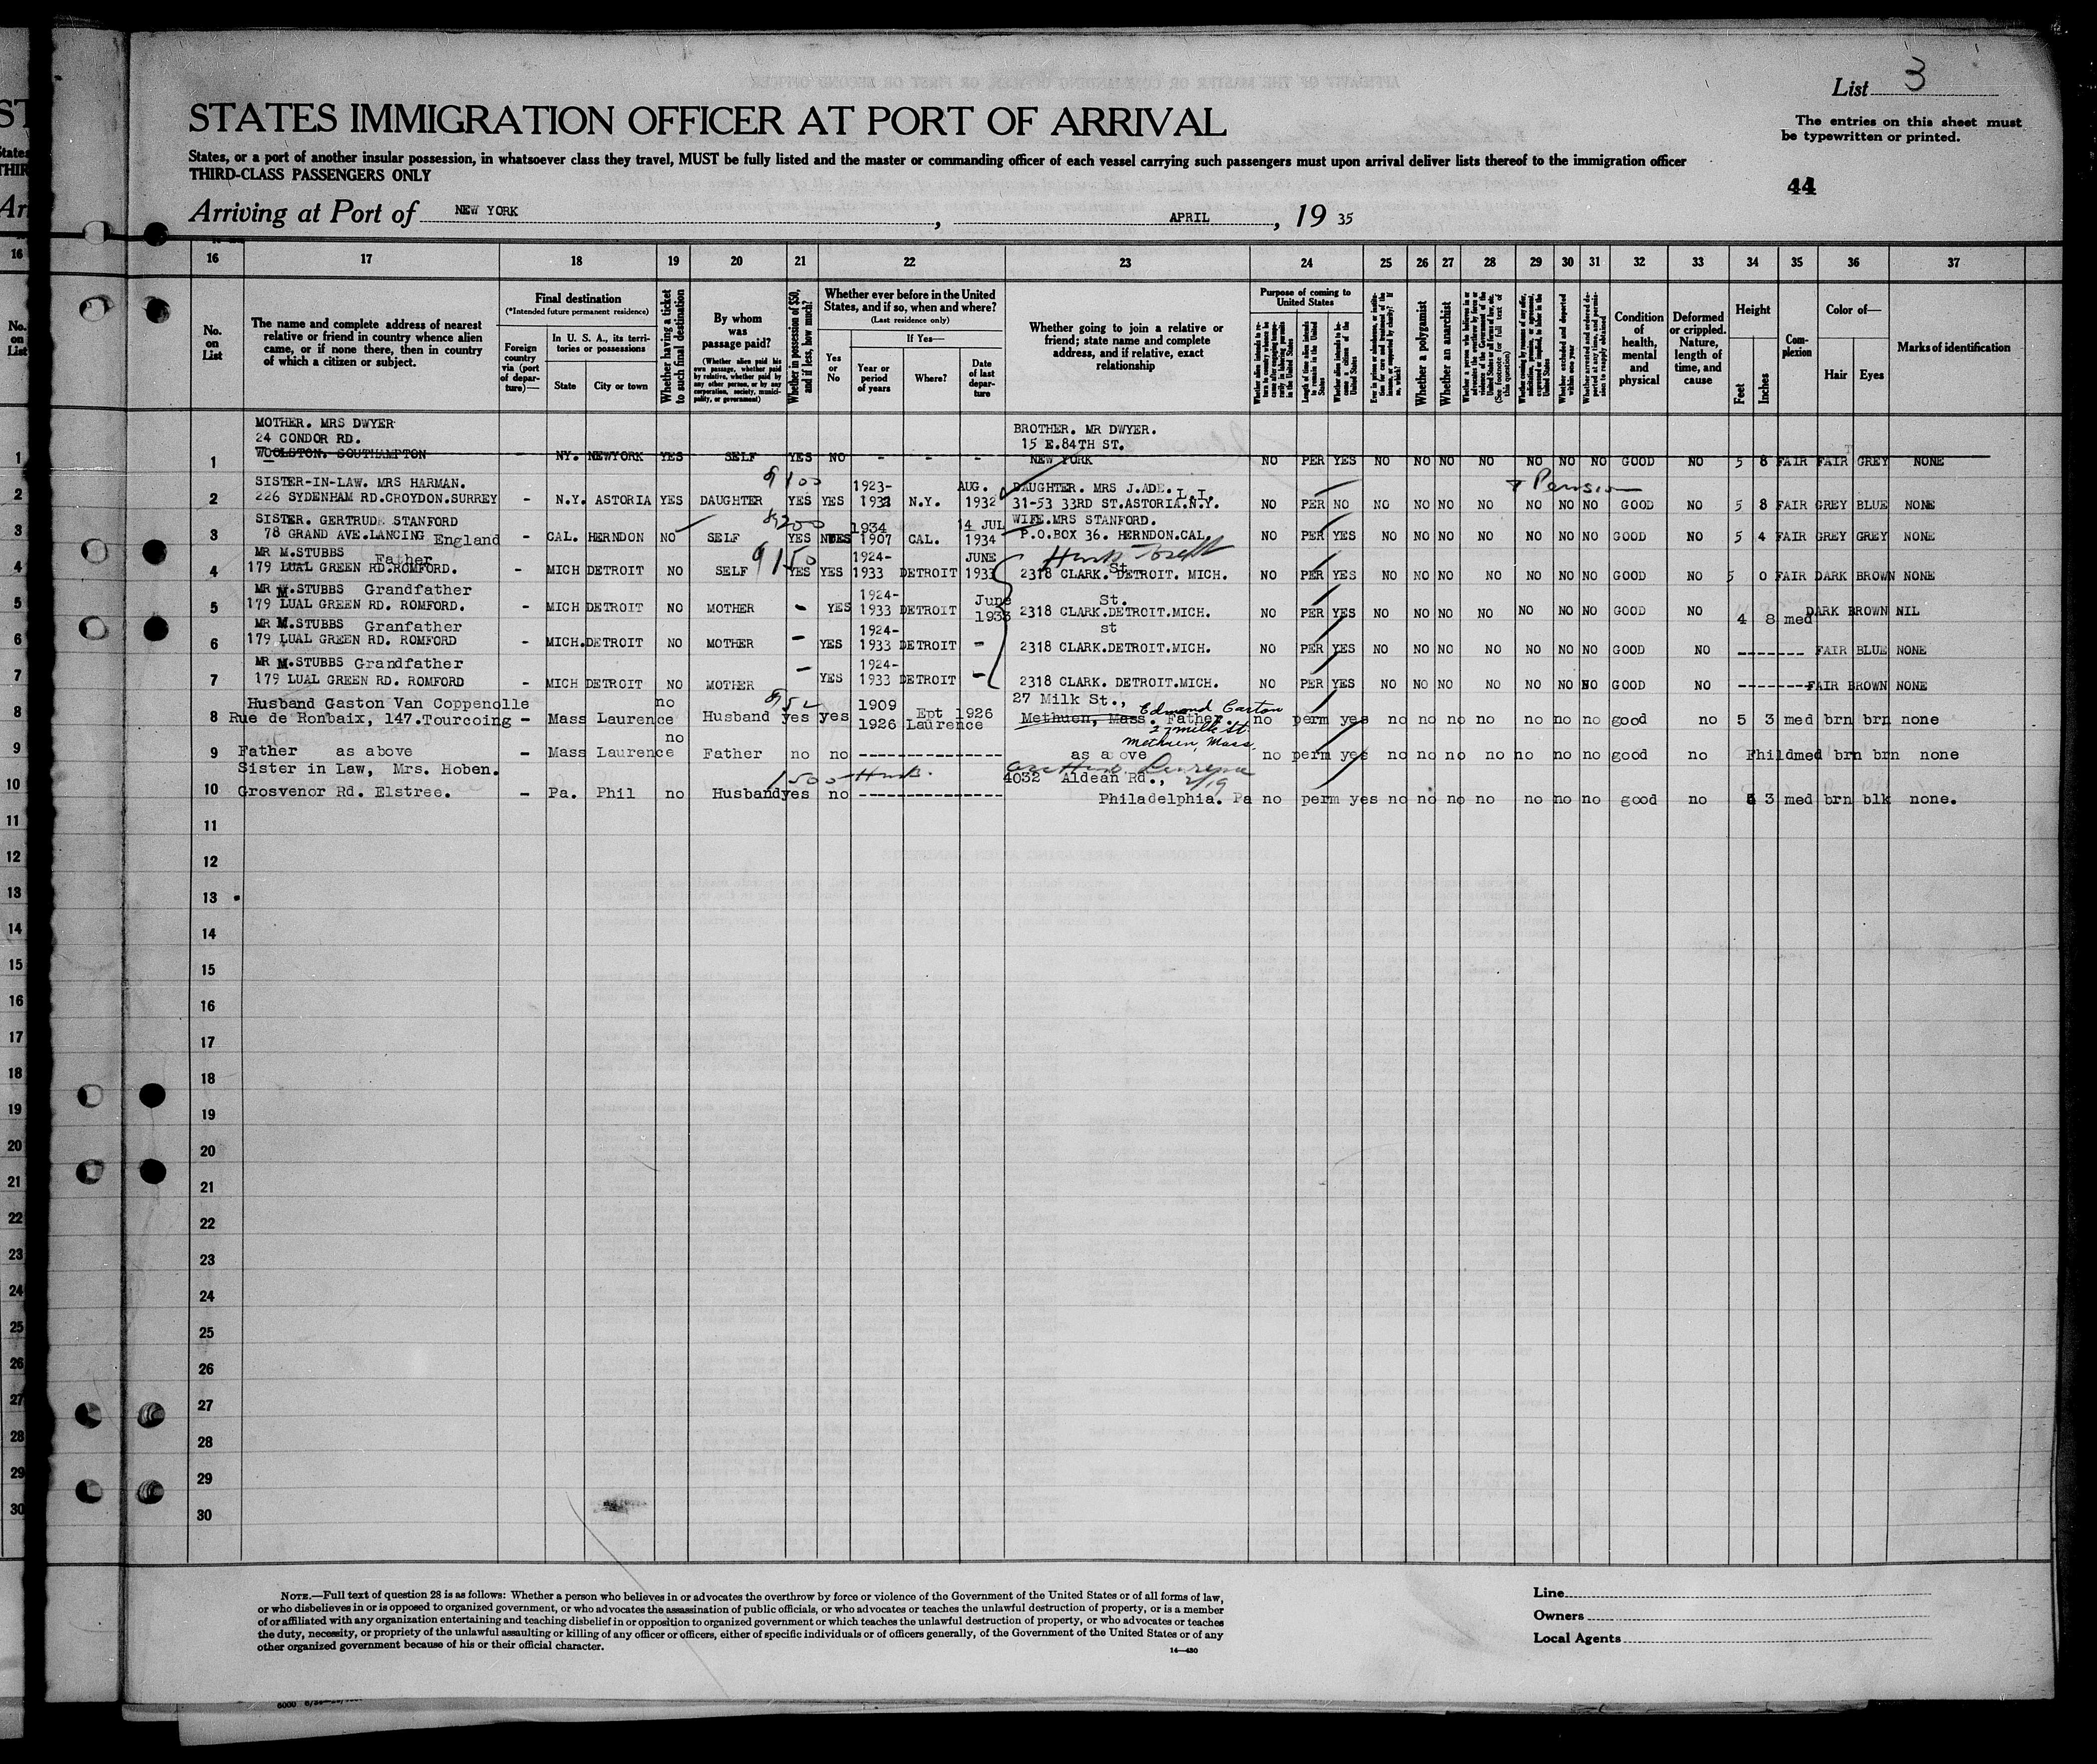 List 3
STATES IMMIGRATION OFFICER AT PORT OF ARRIVAL
The entries on this sheet must
be typewritten or printed.
States, or a port of another insular possession, in whatsoever class they travel, MUST be fully listed and the master or commanding officer of each vessel carrying such passengers must upon arrival deliver lists thereof to the immigration officer
THIRD-CLASS PASSENGERS ONLY
44
Arriving at Port of NEW YORK, APRIL, 19 35
16 17 18 19 20 21 22 23 24 25 26 27 28 29 30 31 32 33 34 35 36 37
No. on List
The name and complete address of nearest relative or friend in country whence alien came, or if none there, then in country of which a citizen or subject.
Final destination
(*Intended future permanent residence)
Foreign country via (port of departure)—
In U. S. A., its territories or possessions
State
City or town
Whether having a ticket to such final destination
By whom was passage paid?
(Whether alien paid his own passage, whether paid by relative, whether paid by any other person, or by any corporation, society, municipality, or government)
Whether in possession of $50, and if less, how much?
Whether ever before in the United States, and if so, when and where?
(Last residence only)
Yes or No
If Yes—
Year or period of years
Where?
Date of last departure
Whether going to join a relative or friend; state name and complete address, and if relative, exact relationship
Purpose of coming to United States
Whether a polygamist
Whether an anarchist
Condition of health, mental and physical
Deformed or crippled. Nature, length of time, and cause
Height
Feet
Inches
Complexion
Color of—
Hair
Eyes
Marks of identification
MOTHER. MRS DWYER BROTHER. MR DWYER.
24 CONDOR RD. 15 E.84TH ST.
1 WOOLSTON. SOUTHAMPTON - NY. NEWYORK YES SELF YES NO - - - NEW YORK NO PER YES NO NO NO NO NO NO NO GOOD NO 5 8 FAIR FAIR GREY NONE
SISTER-IN-LAW. MRS HARMAN. $100 1923- AUG. DAUGHTER. MRS J.ADE. L.I. Pension
2 226 SYDENHAM RD.CROYDON.SURREY - N.Y. ASTORIA YES DAUGHTER YES YES 1932 N.Y. 1932 31-53 33RD ST.ASTORIA.N.Y. NO PER NO NO NO NO NO NO NO NO GOOD NO 5 8 FAIR GREY BLUE NONE
SISTER. GERTRUDE STANFORD $200 1934 14 JUL WIFE.MRS STANFORD.
3 78 GRAND AVE.LANCING England - CAL. HERNDON NO SELF YES YES 1907 CAL. 1934 P.O.BOX 36. HERNDON.CAL. NO PER YES NO NO NO NO NO NO NO GOOD NO 5 4 FAIR GREY GREY NONE
MR M.STUBBS Father $150 1924- JUNE Husb St.
4 179 LUAL GREEN RD.ROMFORD. - MICH DETROIT NO SELF YES YES 1933 DETROIT 1933 2318 CLARK. DETROIT. MICH. NO PER YES NO NO NO NO NO NO NO GOOD NO 5 0 FAIR DARK BROWN NONE
MR M.STUBBS Grandfather 1924- June St.
5 179 LUAL GREEN RD. ROMFORD. - MICH DETROIT NO MOTHER - YES 1933 DETROIT 1933 2318 CLARK.DETROIT.MICH. NO PER YES NO NO NO NO NO NO NO GOOD NO 4 8 med DARK BROWN NIL
MR M.STUBBS Granfather 1924- st
6 179 LUAL GREEN RD. ROMFORD - MICH. DETROIT NO MOTHER - YES 1933 DETROIT - 2318 CLARK.DETROIT.MICH. NO PER YES NO NO NO NO NO NO NO GOOD NO ------- FAIR BLUE NONE
MR M.STUBBS Grandfather 1924-
7 179 LUAL GREEN RD. ROMFORD - MICH DETROIT NO MOTHER - YES 1933 DETROIT - 2318 CLARK. DETROIT.MICH. NO PER YES NO NO NO NO NO NO NO GOOD NO ------- FAIR BROWN NONE
Husband Gaston Van Coppenolle no $52 1909 27 Milk St., Edmond Carton
8 Rue de Ronbaix, 147.Tourcoing - Mass Laurence Husband yes yes 1926 Laurence Ept 1926 Methuen, Mass. Father. no perm yes no no no no no no no good no 5 3 med brn brn none
27 milk St.
methuen, Mass.
no
9 Father as above - Mass Laurence Father no no ------------ as a ove no perm yes no no no no no no no good no Fhildmed brn brn none
Sister in Law, Mrs. Hoben. 150 Husb. 4032 Aldean Rd.,
10 Grosvenor Rd. Elstree. - Pa. Phil no Husband yes no ------------ Philadelphia. Pa no perm yes no no no no no no no good no 5 3 med brn blk none.
11
12
13
14
15
16
17
18
19
20
21
22
23
24
25
26
27
28
29
30
NOTE.—Full text of question 28 is as follows: Whether a person who believes in or advocates the overthrow by force or violence of the Government of the United States or of all forms of law,
or who disbelieves in or is opposed to organized government, or who advocates the assassination of public officials, or who advocates or teaches the unlawful destruction of property, or is a member
of or affiliated with any organization entertaining and teaching disbelief in or opposition to organized government or which teaches the unlawful destruction of property, or who advocates or teaches
the duty, necessity, or propriety of the unlawful assaulting or killing of any officer or officers, either of specific individuals or of officers generally, of the Government of the United States or of any
other organized government because of his or their official character.
14—480
Line
Owners
Local Agents